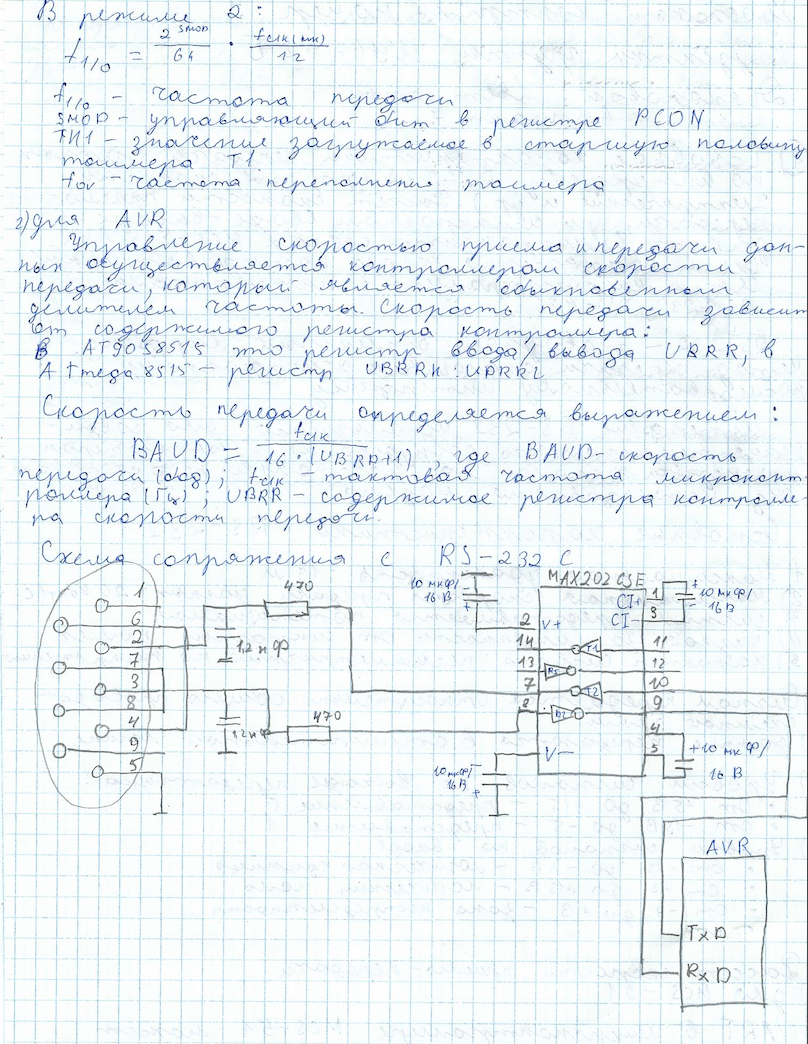 В режиме 2:
f1/0 = 2^SMOD / 64 · fclk(мк) / 12
f1/0 – частота передачи
SMOD – управляющий бит в регистре PCON
TH1 – значение загружаемое в старшую половину
таймера T1
fov – частота переполнения таймера
г) для AVR
Управление скоростью приема и передачи дан-
ных осуществляется контроллером скорости
передачи, который является обыкновенным
делителем частоты. Скорость передачи зависит
от содержимого регистра контроллера:
В AT90S8515 это регистр ввода/вывода UBRR, в
ATmega8515 – регистр UBRRH:UBRRL
Скорость передачи определяется выражением:
BAUD = fclk / 16·(UBRR+1), где BAUD – скорость
передачи (бод); fclk – тактовая частота микроконт
роллера (Гц); UBRR – содержимое регистра контролле-
ра скорости передачи.
Схема сопряжения с RS-232C
1
6
2
7
3
8
4
9
5
470
1,2 нФ
1,2 нФ
470
10 мкФ/
16 В
+
MAX202CSE
2 V+
14
13
7
8
V–
T1
R1
T2
R2
CI+ 1
CI– 3
11
12
10
9
4
5
+
10 мкФ/
16 В
+10 мкФ/
16 В
10 мкФ/
16 В
+
AVR
TxD
RxD